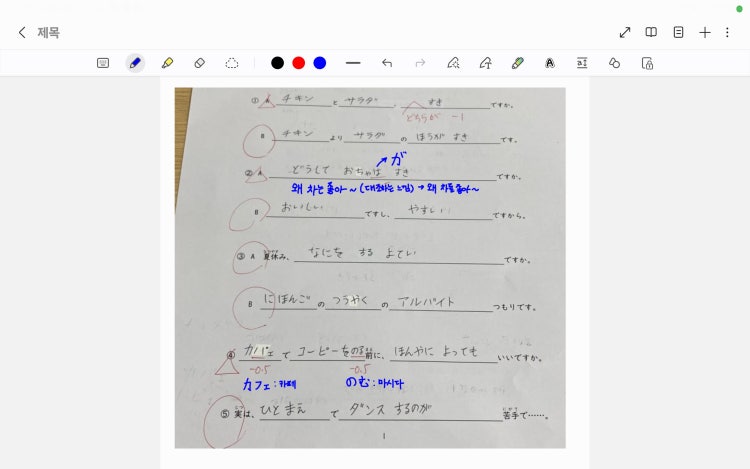 제목
① A チキン と サラダ、 すき ですか。
どちらが -1
B チキン より サラダ の ほうが すき です。
が
② A どうして おちゃは すき ですか。
왜 차는 좋아~ (대조하는 느낌) → 왜 차를 좋아~
B おいしい ですし、 やすい ですから。
③ A 夏休み、 なにを する よてい ですか。
B にほんご の つうやく の アルバイト つもりです。
④ カバェ で コーピーを のる前に、 ほんやに よっても いいですか。
-0.5 -0.5
カフェ : 카페 のむ : 마시다
⑤ 実は、 ひと まえ で ダンス するのが 苦手で……。
1